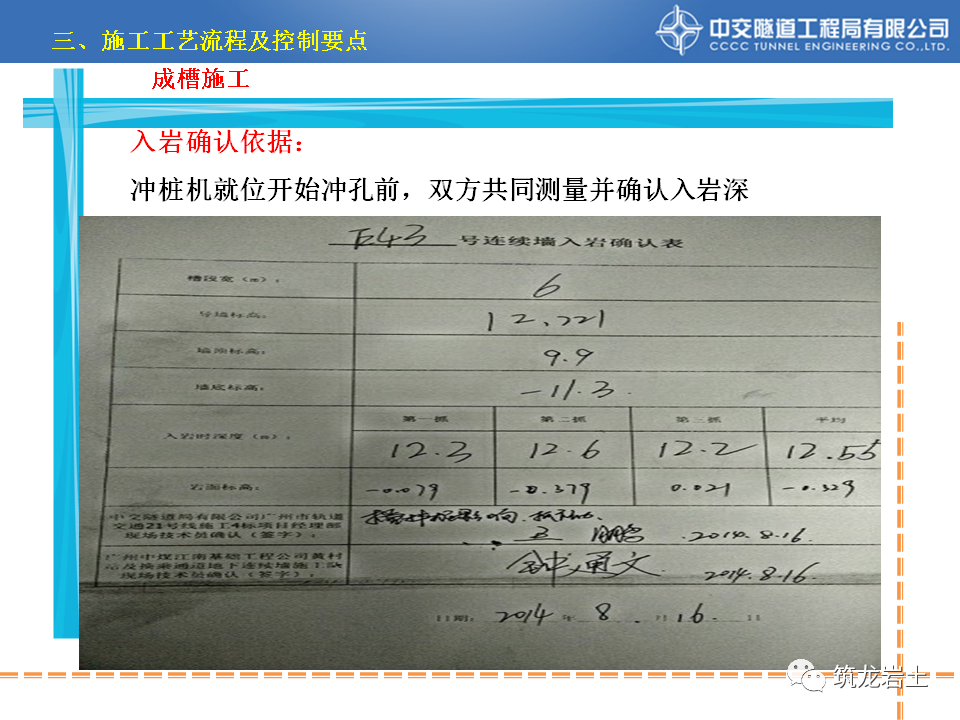 三、施工工艺流程及控制要点
中交隧道工程局有限公司
CCCC TUNNEL ENGINEERING CO.,LTD.
成槽施工
入岩确认依据：
冲桩机就位开始冲孔前，双方共同测量并确认入岩深
E43 号连续墙入岩确认表
槽段宽（m）： 6
导墙标高： 12.221
墙顶标高： 9.9
墙底标高： -11.3
第一抓 第二抓 第三抓 平均
入岩时深度（m）： 12.3 12.6 12.2 12.55
岩面标高： -0.079 -0.379 0.021 -0.329
中交隧道局有限公司广州市轨道
交通21号线施工4标项目经理部
现场技术员确认（签字）： 2014.8.16.
广州中煤江南基础工程公司黄村
站及换乘通道地下连续墙施工队
现场技术员确认（签字）： 2014.8.16.
日期： 2014 年 8 月 16 日
筑龙岩土